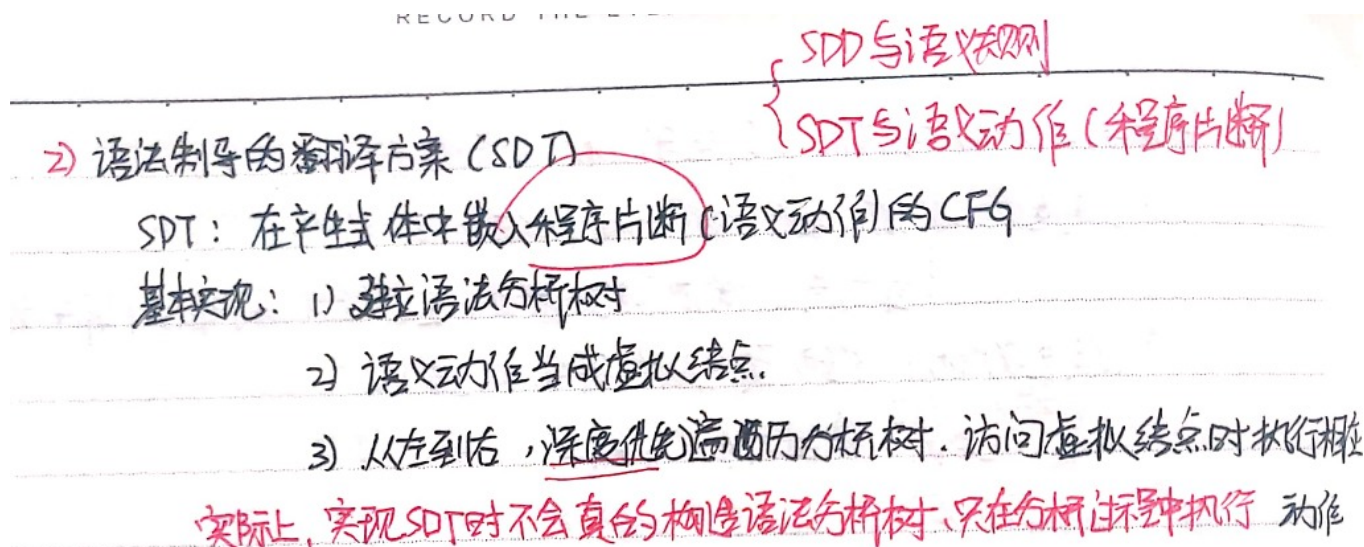 RECORD THE
SDD与语义规则
SDT与语义动作(程序片断)
2) 语法制导的翻译方案(SDT)
SDT: 在产生式体中嵌入程序片断(语义动作)的CFG
基本实现: 1) 建立语法分析树
2) 语义动作当成虚拟结点.
3) 从左到右,深度优先遍历分析树.访问虚拟结点时执行相应
动作
实际上,实现SDT时不会真的构造语法分析树、只在分析过程中执行